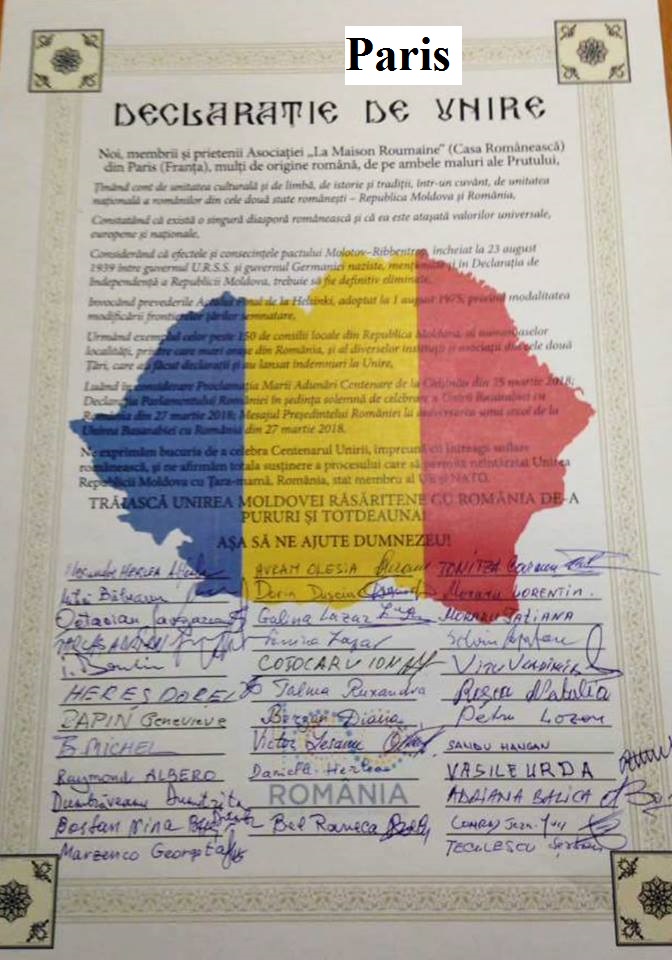 Paris
DECLARAȚIE DE UNIRE
Noi, membrii și prietenii Asociației „La Maison Roumaine” (Casa Românească)
din Paris (Franța), mulți de origine română, de pe ambele maluri ale Prutului,
Ținând cont de unitatea culturală și de limbă, de istorie și tradiții, într-un cuvânt, de unitatea
națională a românilor din cele două state românești – Republica Moldova și România,
Constatând că există o singură diasporă românească și că ea este atașată valorilor universale,
europene și naționale,
Considerând că efectele și consecințele pactului Molotov–Ribbentrop, încheiat la 23 august
1939 între guvernul U.R.S.S. și guvernul Germaniei naziste, menționate și în Declarația de
Independență a Republicii Moldova, trebuie să fie definitiv eliminate,
Invocând prevederile Actului Final de la Helsinki, adoptat la 1 august 1975, privind modalitatea
modificării frontierelor țărilor semnatare,
Urmând exemplul celor peste 150 de consilii locale din Republica Moldova, al numeroaselor
localități, printre care mari orașe din România, și al diverselor instituții și asociații din cele două
Țări, care au făcut declarații și au lansat îndemnuri la Unire,
Luând în considerare Proclamația Marii Adunări Centenare de la Chișinău din 25 martie 2018;
Declarația Parlamentului României în ședința solemnă de celebrare a Unirii Basarabiei cu
România din 27 martie 2018; Mesajul Președintelui României la aniversarea unui secol de la
Unirea Basarabiei cu România din 27 martie 2018,
Ne exprimăm bucuria de a celebra Centenarul Unirii, împreună cu întreaga suflare
românească, și ne afirmăm totala susținere a procesului care să permită neîntârziat Unirea
Republicii Moldova cu Țara-mamă, România, stat membru al UE și NATO.
TRĂIASCĂ UNIREA MOLDOVEI RĂSĂRITENE CU ROMÂNIA DE-A
PURURI ȘI TOTDEAUNA!
AȘA SĂ NE AJUTE DUMNEZEU!
HERLEA AVRAM OLESIA TONITZA Carmen
Dorin Dusciac Moraru LORENTIN
Octavian Galina Lazar MORARU TATIANA
Lazar
COJOCARU ION
HEREȘ DOREL Talma Ruxandra Roșca Natalia
PAPIN Genevieve Bergan Diana Petru Lozan
B. MICHEL Victor SANDU HANGAN
Raymond ALBERO Daniela Herlea VASILE URDA
ROMÂNIA
Dumbrăveanu Dumitrița ADRIANA BALICA
Bostan Nina Bel Rameca
Marzenco Georgeta TECULESCU Șerban